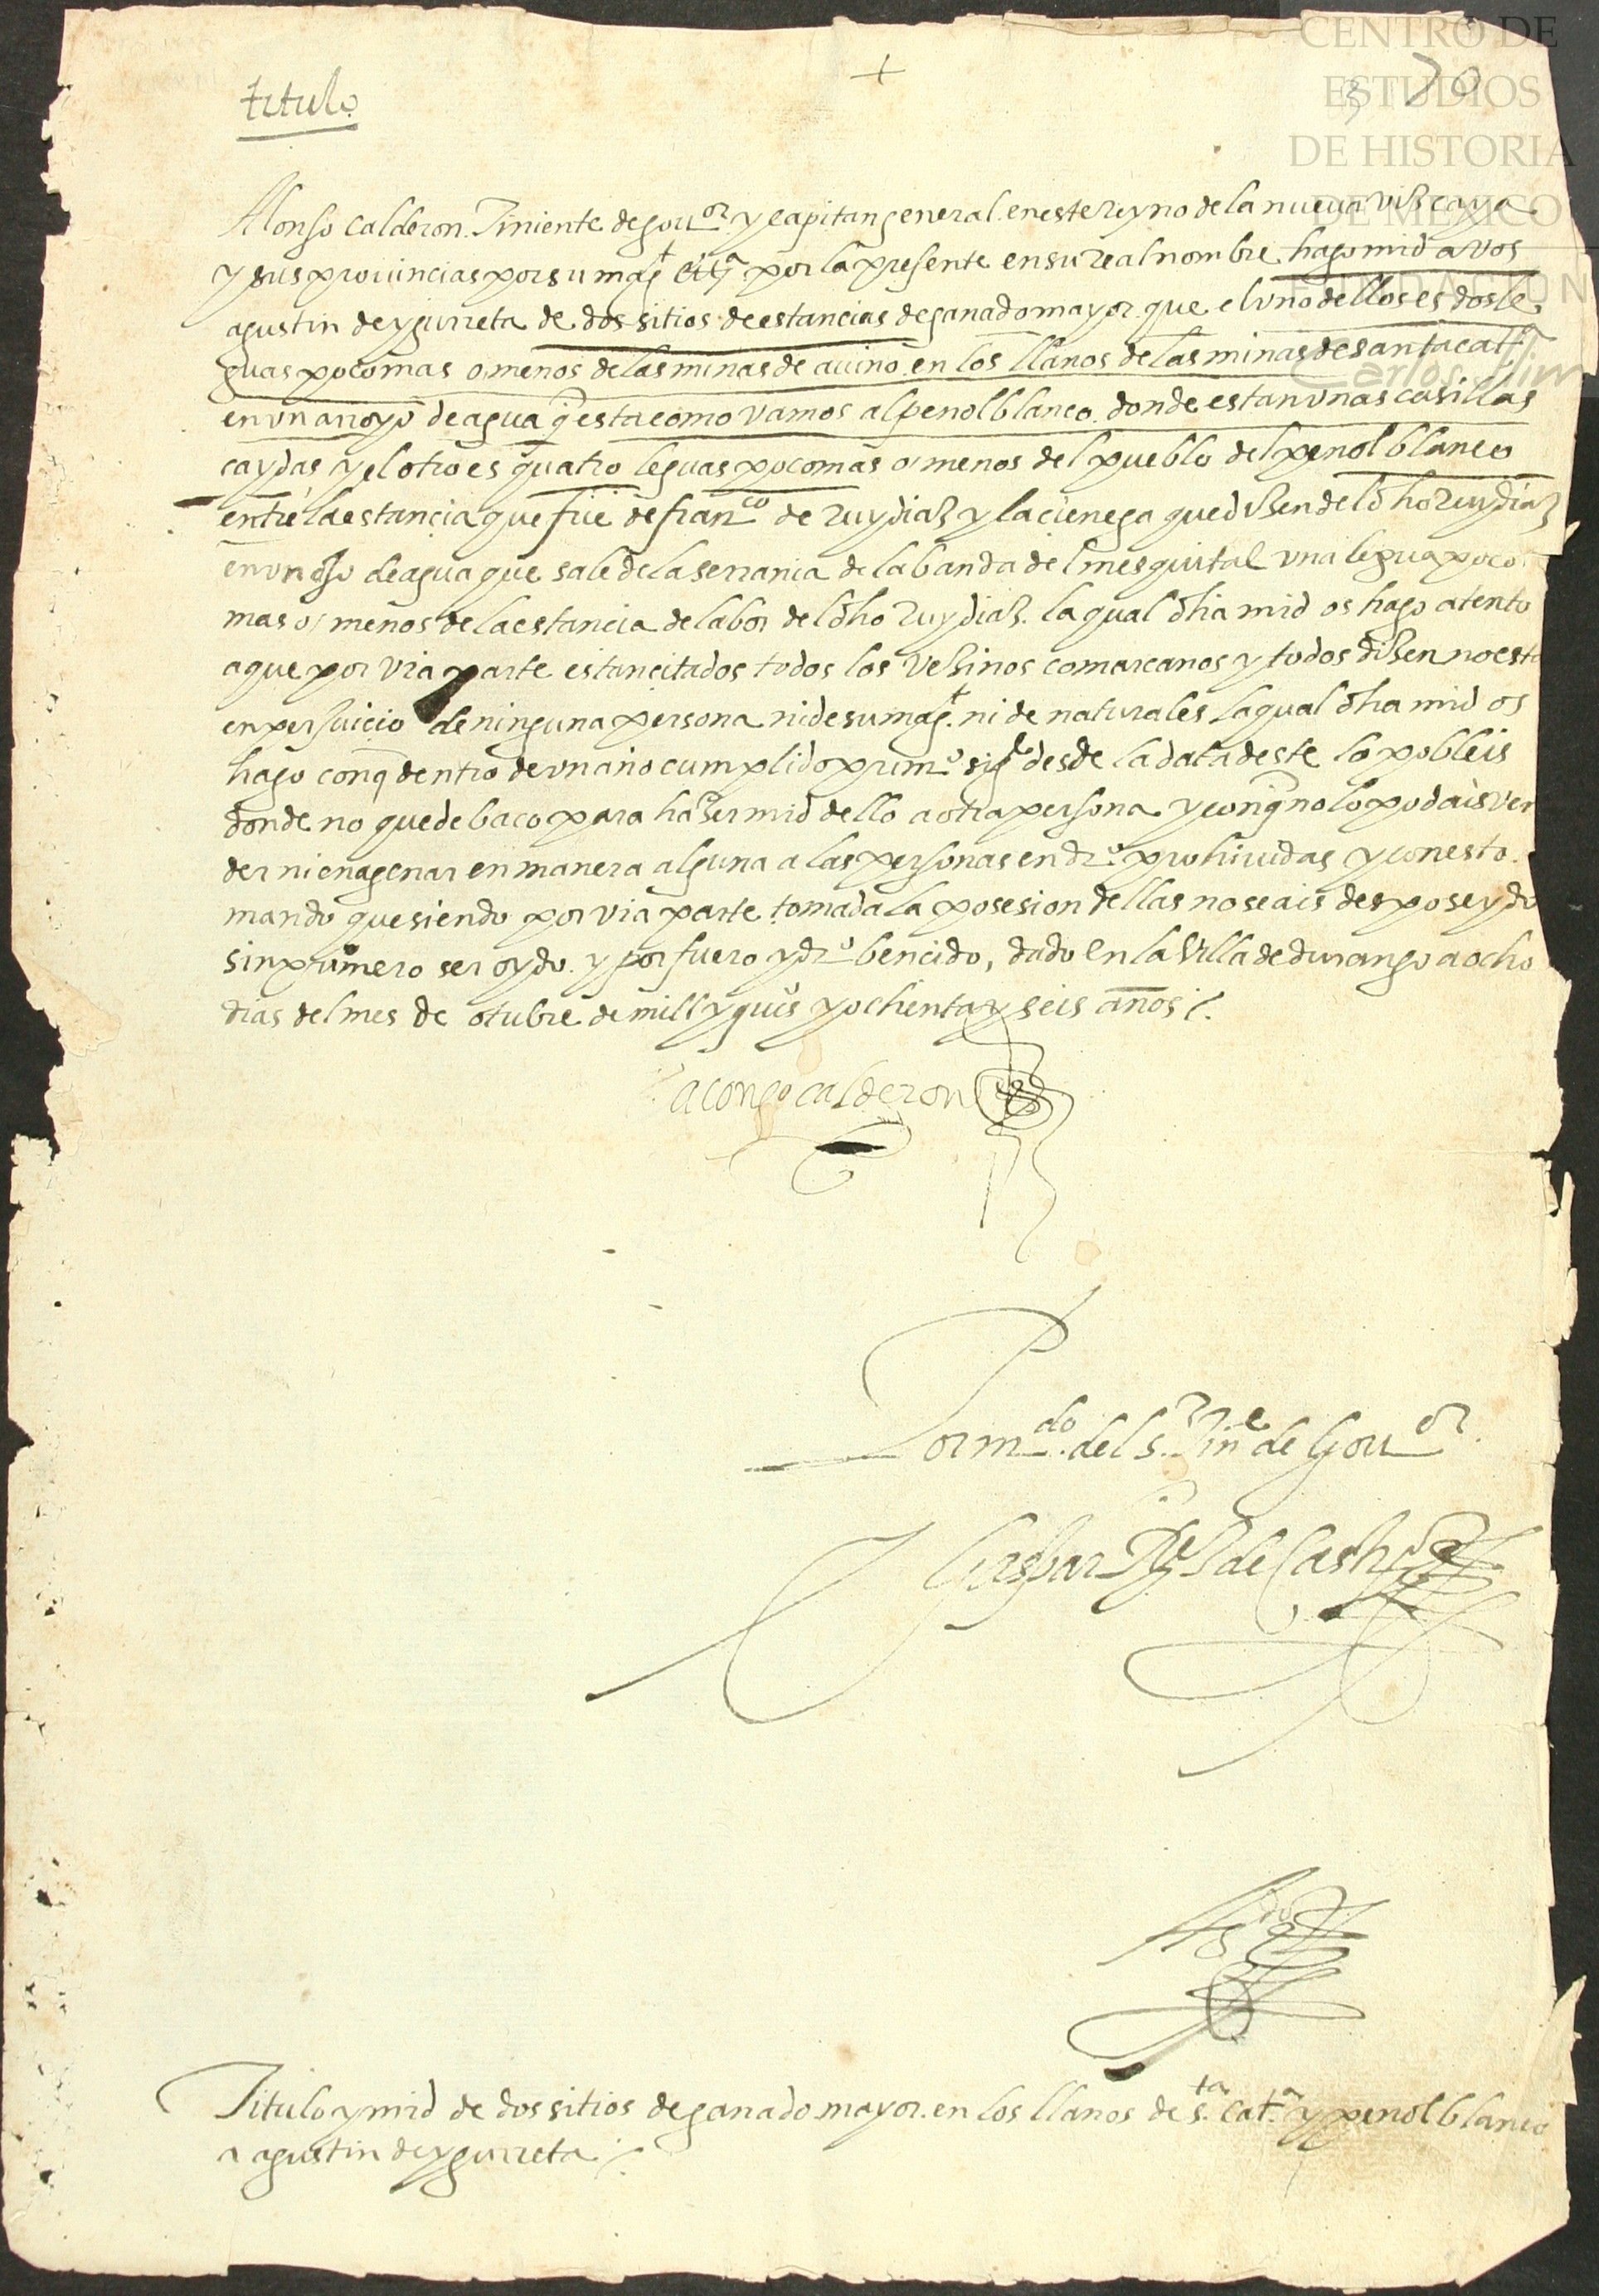 CENTRO DE
ESTUDIOS
DE HISTORIA
DE MEXICO
FUNDACION
Carlos Slim
+
3 70
titulo
Alonso calderon. Tiniente de gouor y capitan general en este reyno de la nueva vizcaya
y sus prouincias por su magt ettª por la presente en su real nombre hago mrd a vos
agustin de ygurreta de dos sitios de estancias de ganado mayor que el vno dellos es dos le
guas poco mas o menos de las minas de auino en los llanos de las minas de santa catª
en vn arroyo de agua q̄ esta como vamos al peñol blanco donde estan vnas casillas
caydas y el otro es quatro leguas poco mas o menos del pueblo del peñol blanco
entre la estancia que fue de franco de ruy diaz y la cienega que dizen del dho ruy diaz
en vn ojo de agua que sale de la serrania de la banda del mesquital vna legua poco
mas o menos de la estancia de labor del dho ruy diaz. la qual dha mrd os hago atento
a que por vra parte estan citados todos los vezinos comarcanos y todos dizen no esta
en perjuicio de ninguna persona ni de su magt. ni de naturales la qual dha mrd os
hago conq̄ dentro de vn año cumplido primº sigte desde la data deste lo pobleis
donde no quede baco para hazer mrd dello a otra persona y conq̄ no lo podais ven
der ni enagenar en manera alguna a las personas en drº prohiuidas y con esto
mando que siendo por vra parte tomada la posesion dellas no seais desposeydo
sin primero ser oydo y por fuero y drº bencido, dado en la Villa de durango a ocho
dias del mes de otubre de mill y quiºs y ochenta y seis años
alonso calderon
Por mdo. del s.r Tine de Gouor.
Gaspar Pz de Castro
Titulo y mrd de dos sitios de ganado mayor en los llanos de s.ta catª y peñol blanco
a agustin de ygurreta